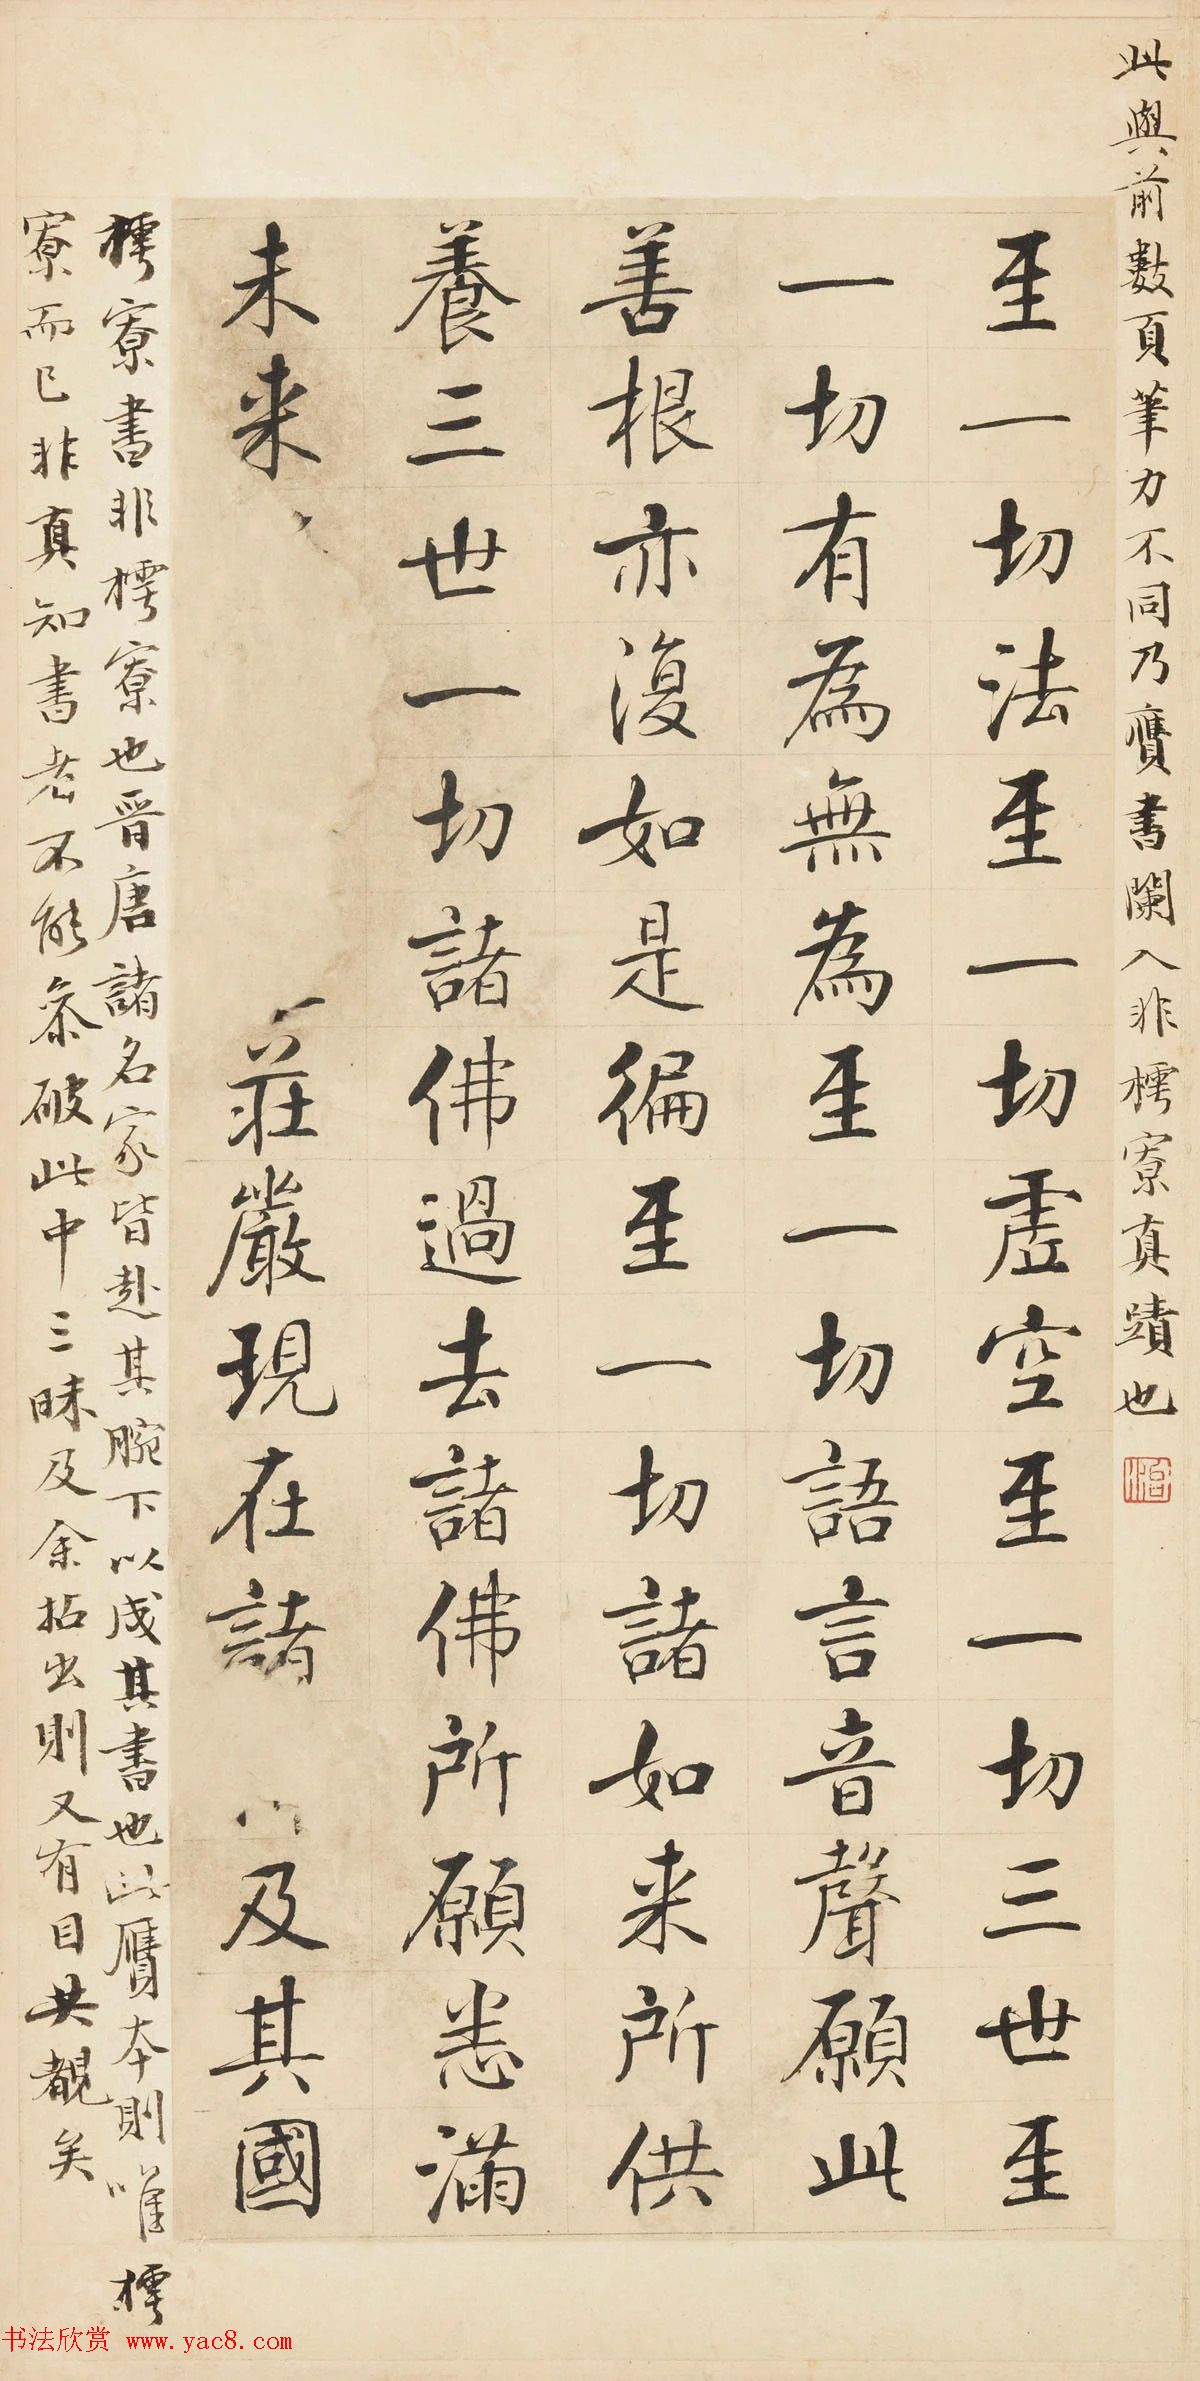 此與前數頁筆力不同乃贋書闌入非樗寮真蹟也
至一切法至一切虛空至一切三世至
一切有為無為至一切語言音聲願此
善根亦復如是徧至一切諸如来所供
養三世一切諸佛過去諸佛所願悉滿
未来莊嚴現在諸及其國
樗寮書非樗寮也晉唐諸名家皆赴其腕下以成其書也此贋本則唯樗
寮而已非真知書者不能叅破此中三昧及余拈出則又有目共覩矣
书法欣赏 www.yac8.com